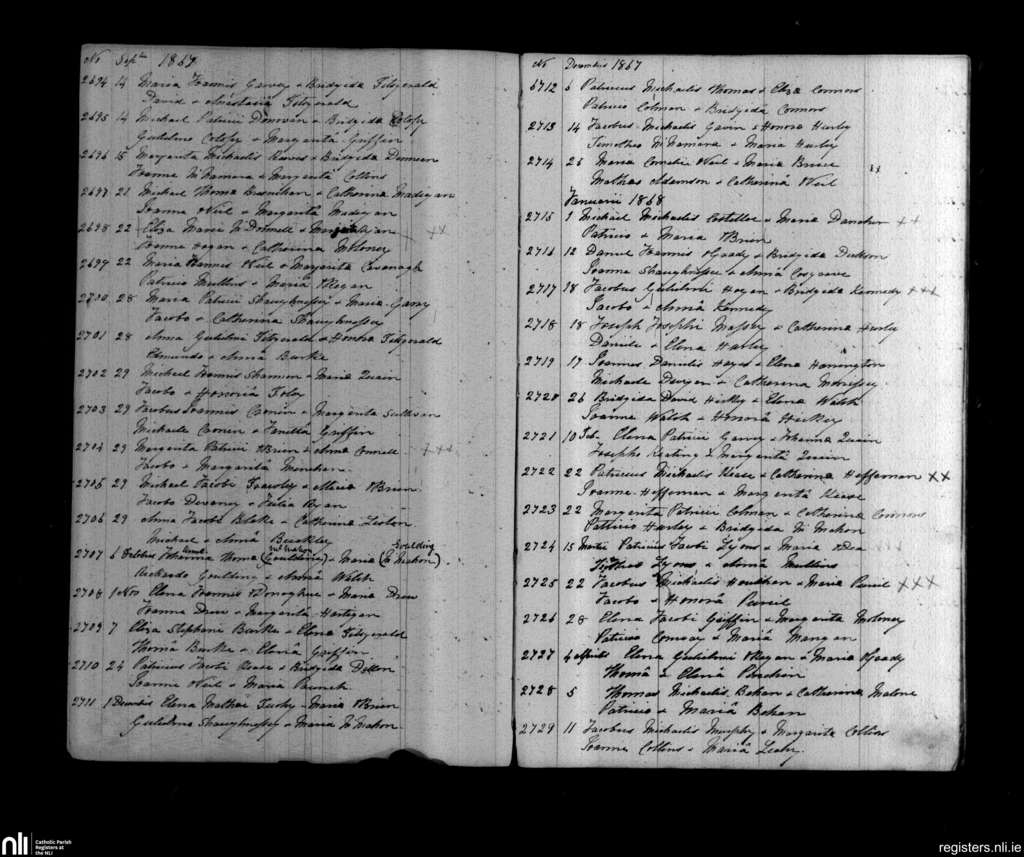 No Septr 1867
2694 14 Maria Joannis Garvey & Bridgida Fitzgerald
David & Anastasia Fitzgerald
2695 14 Michael Patricii Donovan & Bridgida
Gulielmo & Margarita Griffin
2696 15 Margarita Michaelis & Bridgida Dinneen
Joanne McNamara & Margarita Collins
2697 21 Michael Thoma & Catherina Madigan
Joanne Neil & Margarita Madigan
2698 22 Eliza McDonnell & XX
Joanne Hogan & Catherina
2699 22 Maria Joannis Neil & Margarita Cavanagh
Patricio Mullins & Maria ORegan
2700 28 Maria Patricii Shaughnessy & Maria Garry
Jacobo & Catherina Shaughnessy
2701 28 Anna Gulielmi Fitzgerald & Honora Fitzgerald
Edmundo & Anna Burke
2702 29 Michael Joannis Shannon & Maria Quain
Jacobo & Honoria Foley
2703 29 Jacobus Joannis & Margarita Sullivan
Michaele & Griffin
2704 29 Margarita Patricii OBrien & Anna Connell XXX
Jacobo & Margarita
2705 29 Michael Jacobi & Maria OBrien
Jacobo Devaney & Julia Ryan
2706 29 Anna Jacobi Blake & Catherina
Michael & Anna
2707 6 Octobris Johanna Thoma (Goulding) & Maria (McMahon)
Richardo Goulding & Anna Walsh
2708 1 Nov Elena Joannis ODonoghue & Maria Drew
Joanne Drew & Margarita Hartigan
2709 7 Eliza Stephani Burke & Elena Fitzgerald
Thomâ Burke & Elenâ Griffin
2710 24 Patricius Jacobi & Bridgida
Joanne Neil & Maria
2711 1 Decembris Elena Mathai & Maria OBrien
Gulielmo Shaughnessy & Maria McMahon
No Decembris 1867
2712 6 Patricius Michaelis Thomas & Eliza Connors
Patricio Colman & Bridgida Connors
2713 14 Jacobus Michaelis Gavin & Honora Hurley
Timotheo McNamara & Maria Hurley
2714 26 Maria Cornelii Neil & Maria XX
Mathao Adamson & Catherinâ Neil
Januarii 1868
2715 1 Michael Michaelis Costelloe & Maria XX
Patricio & Maria OBrien
2716 12 Daniel Joannis OGrady & Bridgida
Joanne Shaughnessy & Anna Cosgrave
2717 18 Jacobus Gulielmi Hogan & Bridgida Kennedy XXX
Jacobo & Annâ Kennedy
2718 18 Joseph Josephi Massey & Catherina Hurley
Daniele & Elena Hurley
2719 17 Joannes Danielis Hayes & Elena Hanington
Michaele Dwyer & Catherina Morrissey
2720 26 Bridgida David Hickey & Elena Walsh
Joanne Walsh & Honorâ Hickey
2721 10 Feb. Elena Patricii Garvey & Johanna Quain
Josepho Keating & Margarita Quain
2722 22 Patricius Michaelis & Catherina Heffernan XX
Joanne Heffernan & Margarita
2723 22 Margarita Patricii Colman & Catherina Connors
Patricio Hurley & Bridgida McMahon
2724 15 Martii Patricius Jacobi Lyons & Maria ODea
Lyons & Anna Mullins
2725 22 Jacobus Michaelis & Maria XXX
Jacobo & Honorâ
2726 28 Elena Jacobi Griffin & Margarita Moloney
Patricio Conway & Mariâ Mangan
2727 4 Aprilis Elena Gulielmi ORegan & Maria OGrady
Thomâ & Elena
2728 5 Thomas Michaelis Bohan & Catherina Malone
Patricio & Mariâ Bohan
2729 11 Jacobus Michaelis Murphy & Margarita Collins
Joanne Collins & Mariâ Leahy
nli
Catholic Parish
Registers at
the NLI
registers.nli.ie